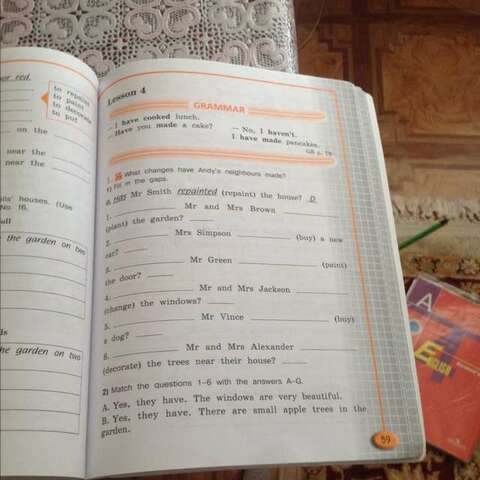 or red.
to repaint
to paint
to decorate
to put
on the
near the
near the
houses. (Use
No 16.
ull
the garden on two
he garden on two
Lesson 4
GRAMMAR
I have cooked lunch.
Have you made a cake?
– No, I haven't.
I have made pancakes.
GR p.
1. What changes have Andy's neighbours made?
1) Fill in the gaps.
0. Has Mr Smith repainted (repaint) the house? D
1. Mr and Mrs Brown
(plant) the garden?
2. Mrs Simpson (buy) a new
car?
3. Mr Green (paint)
the door?
4. Mr and Mrs Jackson
(change) the windows?
5. Mr Vince (buy)
a dog?
6. Mr and Mrs Alexander
(decorate) the trees near their house?
2) Match the questions 1–6 with the answers A–G.
A. Yes, they have. The windows are very beautiful.
B. Yes, they have. There are small apple trees in the
garden.
59
A
ENGLISH